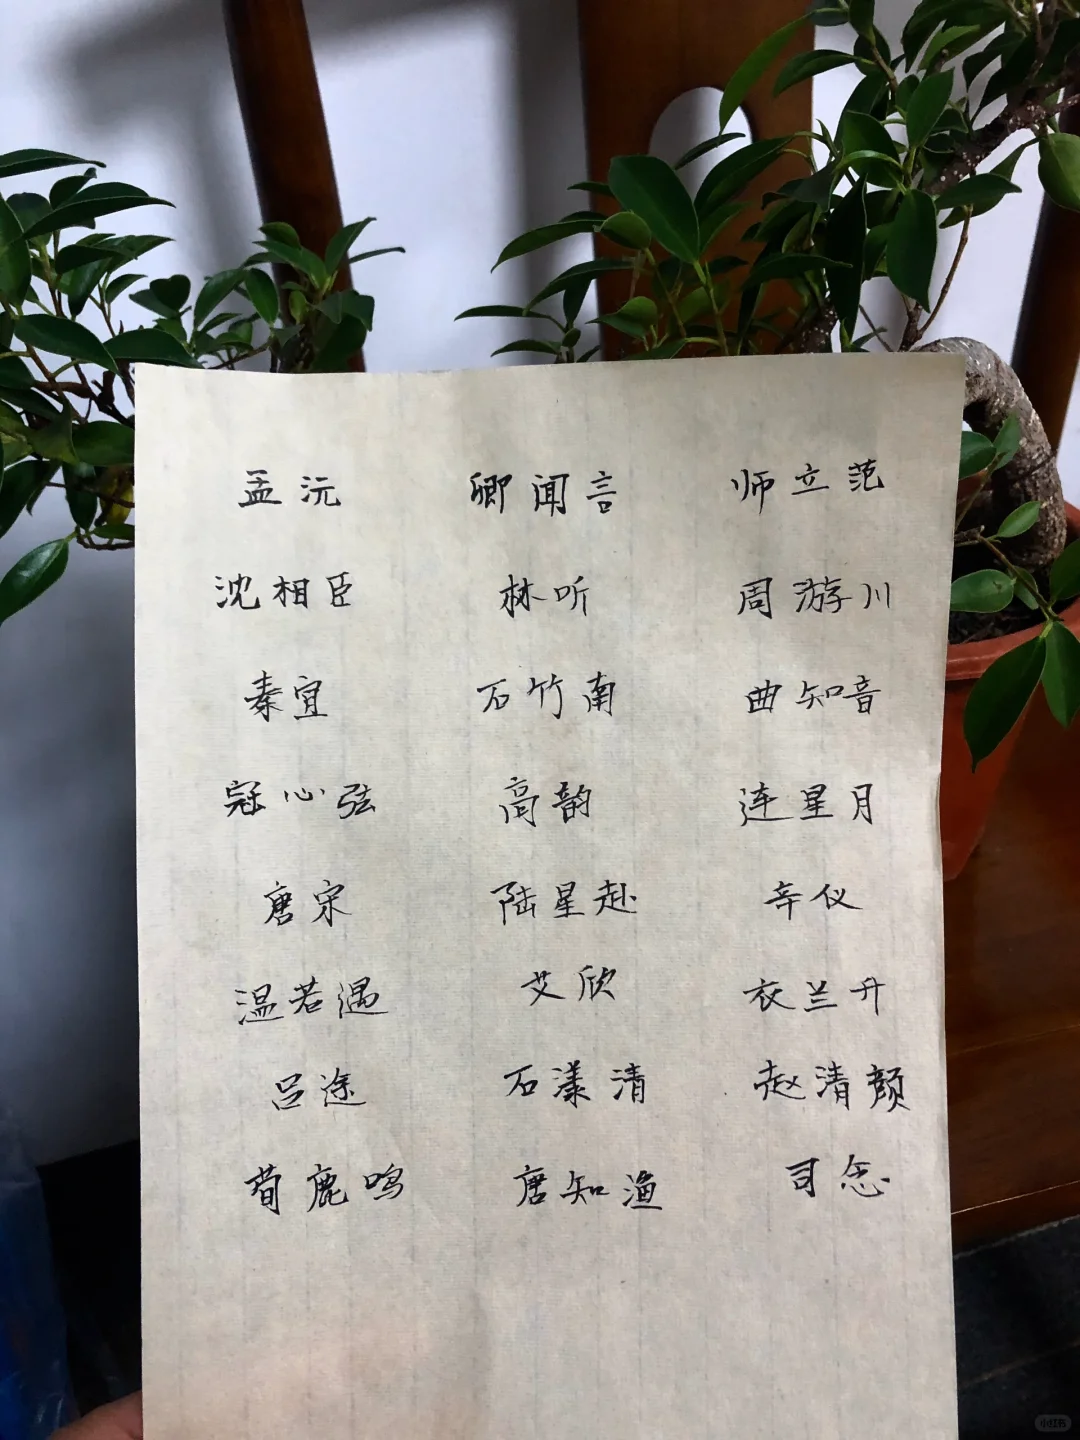 孟沅 卿闻言 师立范
沈相臣 林听 周游川
秦宜 石竹南 曲知音
冠心弦 高韵 连星月
唐宋 陆星赴 辛仪
温若遇 艾欣 衣兰升
吕途 石漾清 赵清颜
荀鹿鸣 唐知渔 司念
小红书